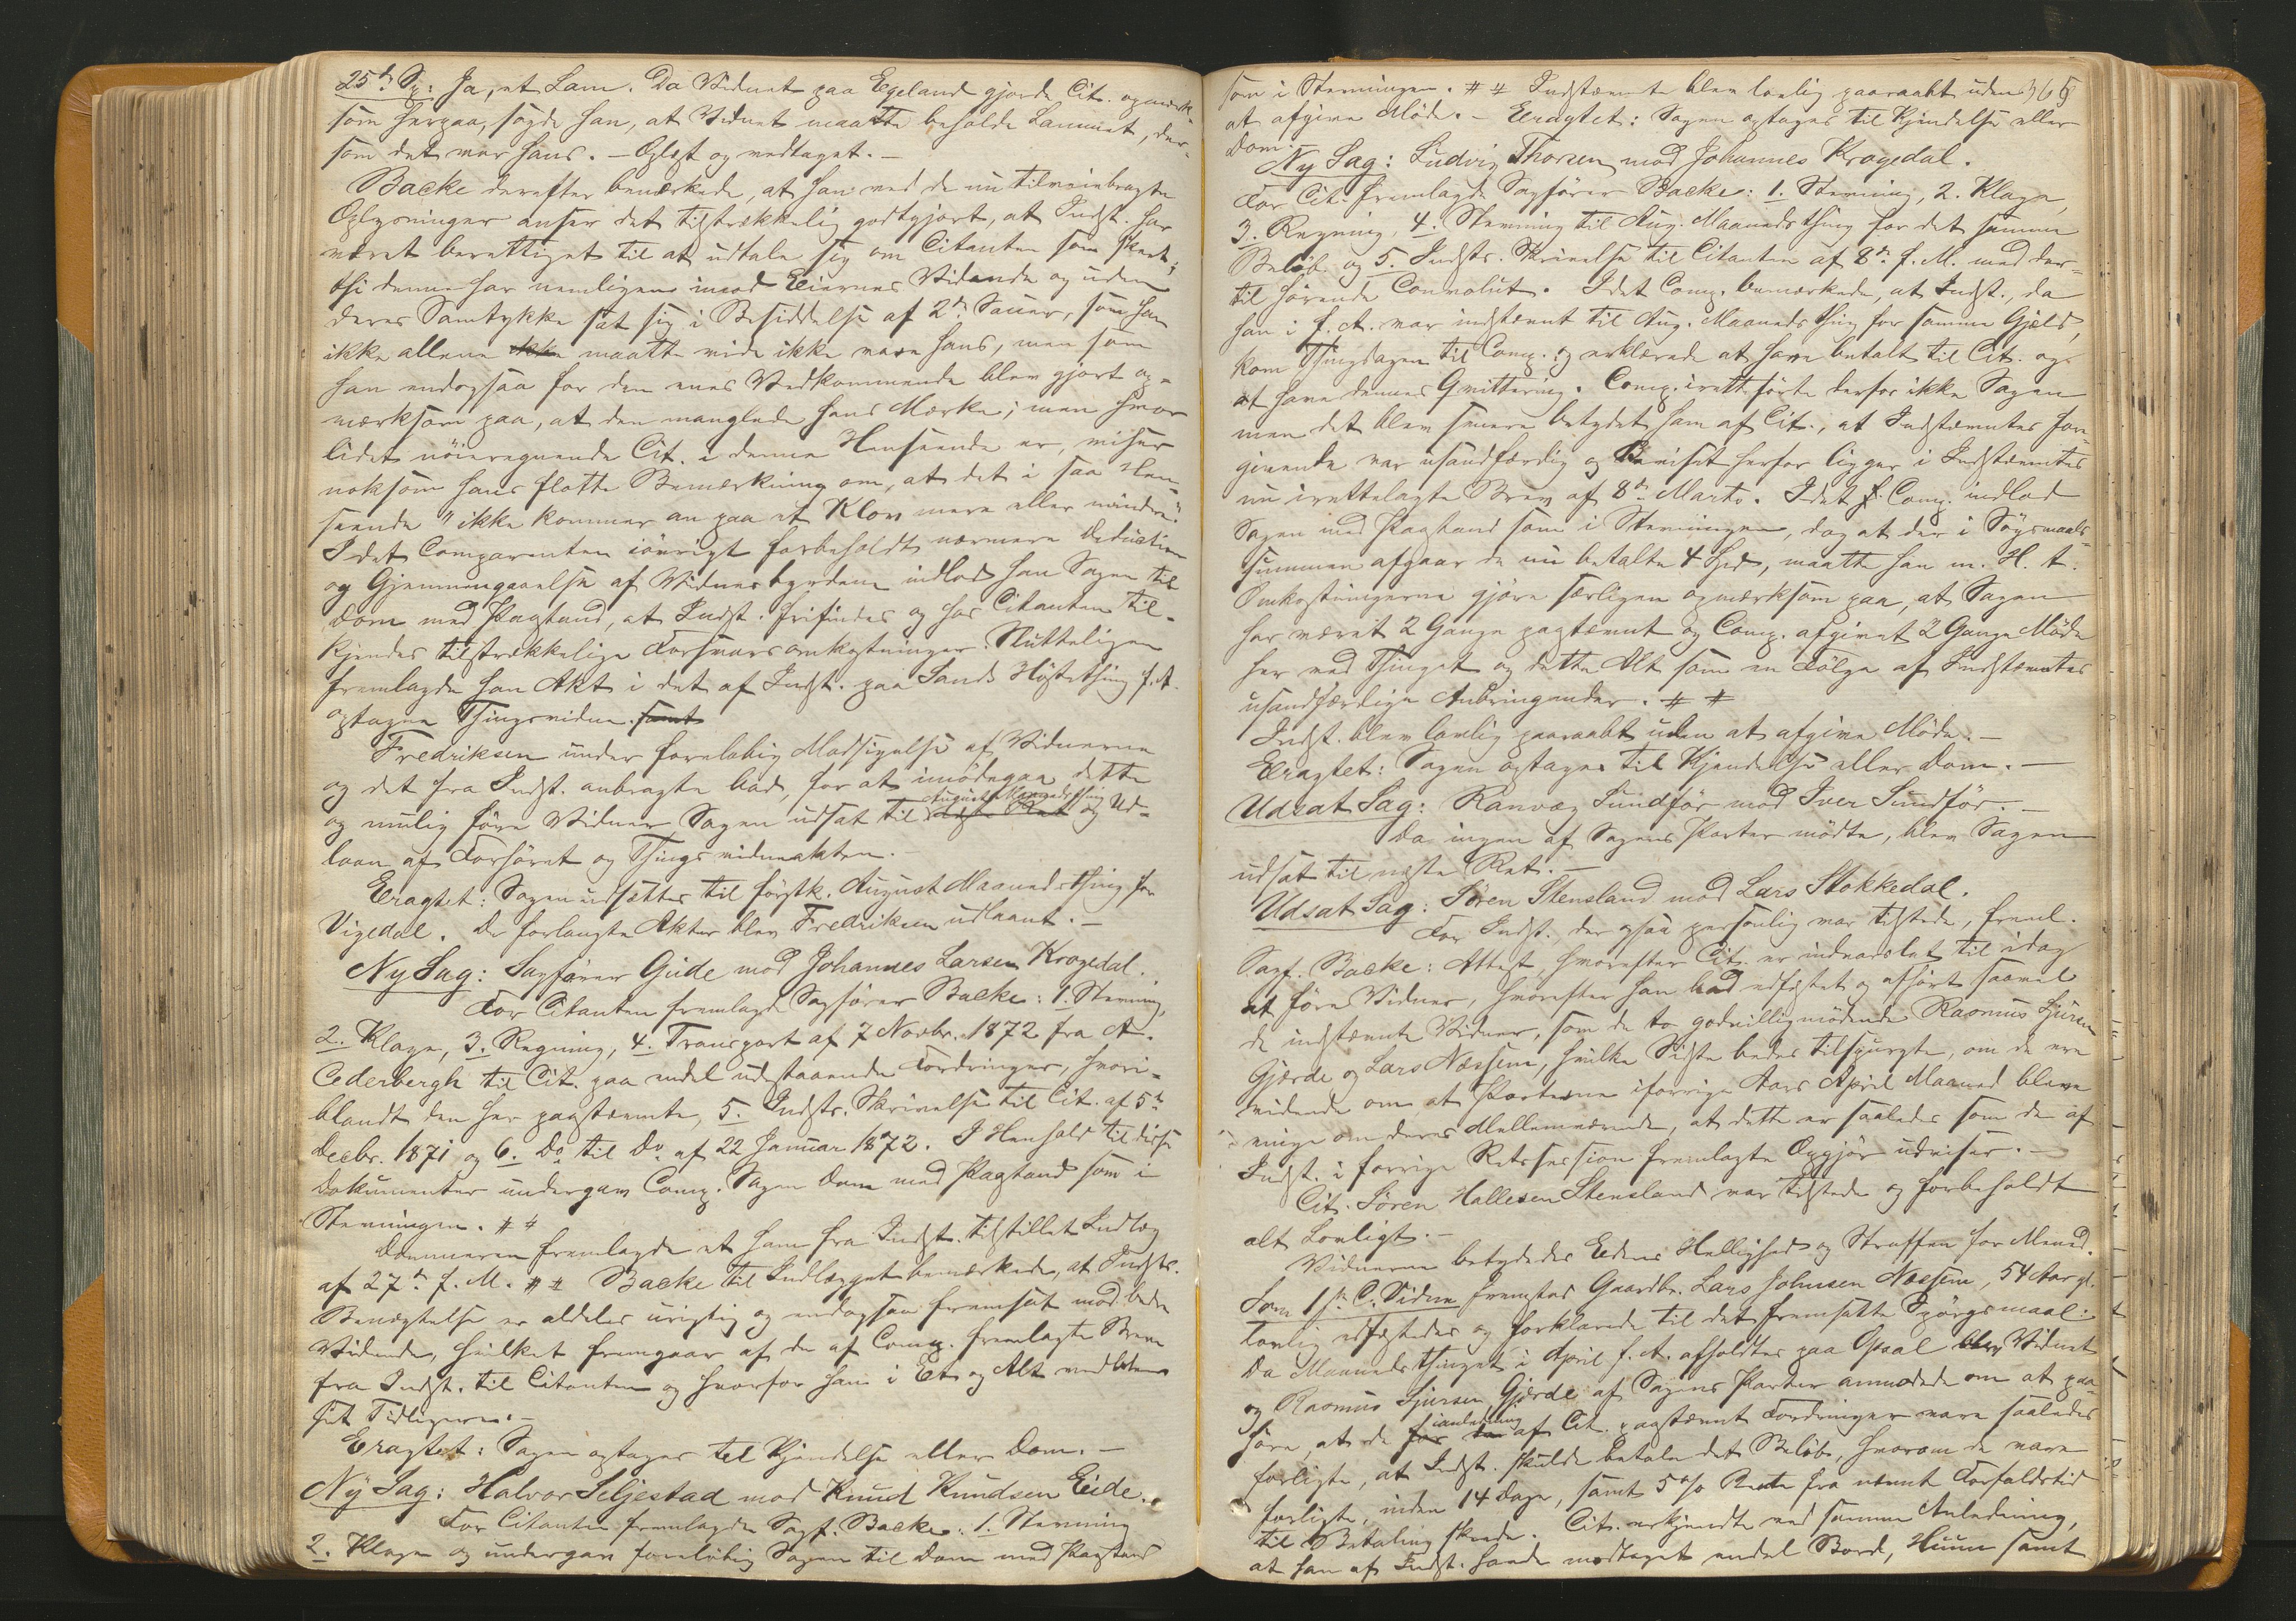 25de Sp: Ja, et Lam. Da Vidnet paa Egeland gjorde Cit. opmærk-
som herpaa, sagde han, at Vidnet maatte beholde Lammet, der-
som det var hans. – Oplæst og vedtaget. –
Backe derefter bemærkede, at han ved de nu tilveiebragte
Oplysninger anser det tilstrækkelig godtgjort, at Indst. har
været berettiget til at udtale sig om Citanten som skeet;
thi denne har nemligen imod Eiernes Vidende og uden
deres Samtykke sat sig i Besiddelse af 2de Sauer, som han
ikke allene ikke maatte vide ikke vare hans, men som
han endogsaa for den enes Vedkommende blev gjort op-
mærksom paa, at den manglede hans Mærke; men hvor
lidet nöieregnende Cit. i denne Henseende er, viser
noksom hans flotte Bemærkning om, at det i saa Hen-
seende "ikke kommer an paa et Klov mere eller mindre."
Idet Comparenten iövrigt forbeholdt nærmere Deduction
og Gjennemgaaelse af Vidnesbyrdene indlod han Sagen til
Dom med Paastand, at Indst. frifindes og hos Citanten til-
kjendes tilstrækkelige Forsvarsomkostninger. Slutteligen
fremlagde han Akt i det af Indst. paa Sands Hösthing f. A.
optagne Thingsvidne. samt
Fredriksen under foreløbig Modsigelse af Vidnerne
og det fra Indst. anbragte bad, for at imödegaa dette
og mulig före Vidner Sagen udsat til næste Ret August Maanedsthing og Ud-
laan af Forhöret og Thingsvidneakten.
Eragtet: Sagen udsættes til förstk. August Maanedsthing for
Vigedal. De forlangte Akter blev Fredriksen udlaant. –
Ny Sag: Sagförer Gude mod Johannes Larsen Krogedal.
For Citanten fremlagde Sagförer Backe: 1. Stevning,
2. Klage, 3. Regning, 4. Transport af 7 Novbr. 1872 fra A.
Cederbergh til Cit. paa endel udestaaende Fordringer, hvori-
blandt den her paastævnte, 5. Indsts. Skrivelse til Cit. af 5te
Decbr. 1871 og 6. Do til Do af 22 Januar 1872. I Henhold til disse
Dokumenter undergav Comp. Sagen Dom med Paastand som i
Stevningen. ##
Dommeren fremlagde et ham fra Indst. tilstillet Indlæg
af 27de f. M. ## Backe til Indlægget bemærkede, at Indsts.
Benægtelse er aldeles urigtig og endogsaa fremsat mod bedre
Vidende, hvilket fremgaar af de af Comp. fremlagte Breve
fra Indst. til Citanten og hvorfor han i Et og Alt vedblev
sit Tidligere. –
Eragtet: Sagen optages til Kjendelse eller Dom. –
Ny Sag: Halvor Seljestad mod Knud Knudsen Eide.
For Citanten fremlagde Sagf. Backe: 1. Stevning
2. Klage og undergav foreløbig Sagen til Dom med Paastand
som i Stevningen. ## Indstævnte blev lovlig paaraabt uden 365
at afgive Möde. – Eragtet: Sagen optages til Kjendelse eller
Dom.
Ny Sag: Ludvig Thorsen mod Johannes Krogedal.
For Cit. fremlagde Sagförer Backe: 1. Stevning, 2. Klage,
3. Regning, 4. Stevning til Aug. Maanedsthing for det samme
Belöb og 5. Indsts. Skrivelse til Citanten af 8de f. M. med der-
til hörende Convolut. Idet Comp. bemærkede, at Indst., da
han i f. A. var indstævnt til Aug. Maanedsthing for samme Gjæld,
kom Thingdagen til Comp. og erklærede at have betalt til Cit. og
at have dennes Qvittering. Comp. irettförte derfor ikke Sagen
men det blev senere betydet ham af Cit., at Indstævntes Fore-
givende var usandfærdig og Beviset herfor ligger i Indstævntes
nu irettelagte Brev af 8de Marts. Idet Comp. indlod
Sagen med Paastand som i Stevningen, dog at der i Søgsmaals-
summen afgaar de nu betalte 4 Spd, maatte han m. H. t.
Omkostningerne gjöre særligen opmærksom paa, at Sagen
har været 2 Gange paastævnt og Comp. afgivet 2 Gange Möde
her ved Thinget og dette Alt som en Fölge af Indstævntes
usandfærdige Anbringender. ##
Indst. blev lovlig paaraabt uden at afgive Möde. –
Eragtet: Sagen optages til Kjendelse eller Dom. –
Udsat Sag: Ranveg Sundför mod Iver Sundför. –
Da ingen af Sagens Parter mödte, blev Sagen
udsat til næste Ret. –
Udsat Sag: Sören Stensland mod Lars Stokkedal.
For Indst., der ogsaa personlig var tilstede, freml.
Sagf. Backe: Attest, hvorefter Cit. er indvarslet til idag
at före Vidner, hvorefter han bad edfæstet og afhört saavel
de indstævnte Vidner, som de to godvilligmödende Rasmus Sjursen
Gjærde og Lars Næssem, hvilke Sidste bedes tilspurgte, om de ere
vidende om, at Parterne i forrige Aars April Maaned bleve
enige om deres Mellemværende, at dette er saaledes som de af
Indst. i forrige Retssession fremlagte Opgjør udviser. –
Cit. Sören Hallesen Stensland var tilstede og forbeholdt
alt Lovligt. –
Vidnerne betydedes Edens Hellighed og Straffen for Mened.
Som 1ste C. Vidne fremstod Gaardbr. Lars Johnsen Næssem, 54 Aar gl.
Lovlig edfæstedes og forklarede til det fremsatte Spörgsmaal:
Da Maanedsthinget i April f. A. afholdtes paa Opsal blev Vidnet
og Rasmus Sjursen Gjærde af Sagens Parter anmodede om at paa-
höre, at de for den ianledning af Cit. paastævnt Fordringer vare saaledes
forligte, at Indst. skulde betale det Belöb, hvorom de vare
forligte, inden 14 Dage, samt 5 % Rente fra nævnt Forfaldstid
til Betaling skede. Cit. erkjendte ved samme Anledning,
at han af Indst. havde modtaget endel Bord, Huun samt